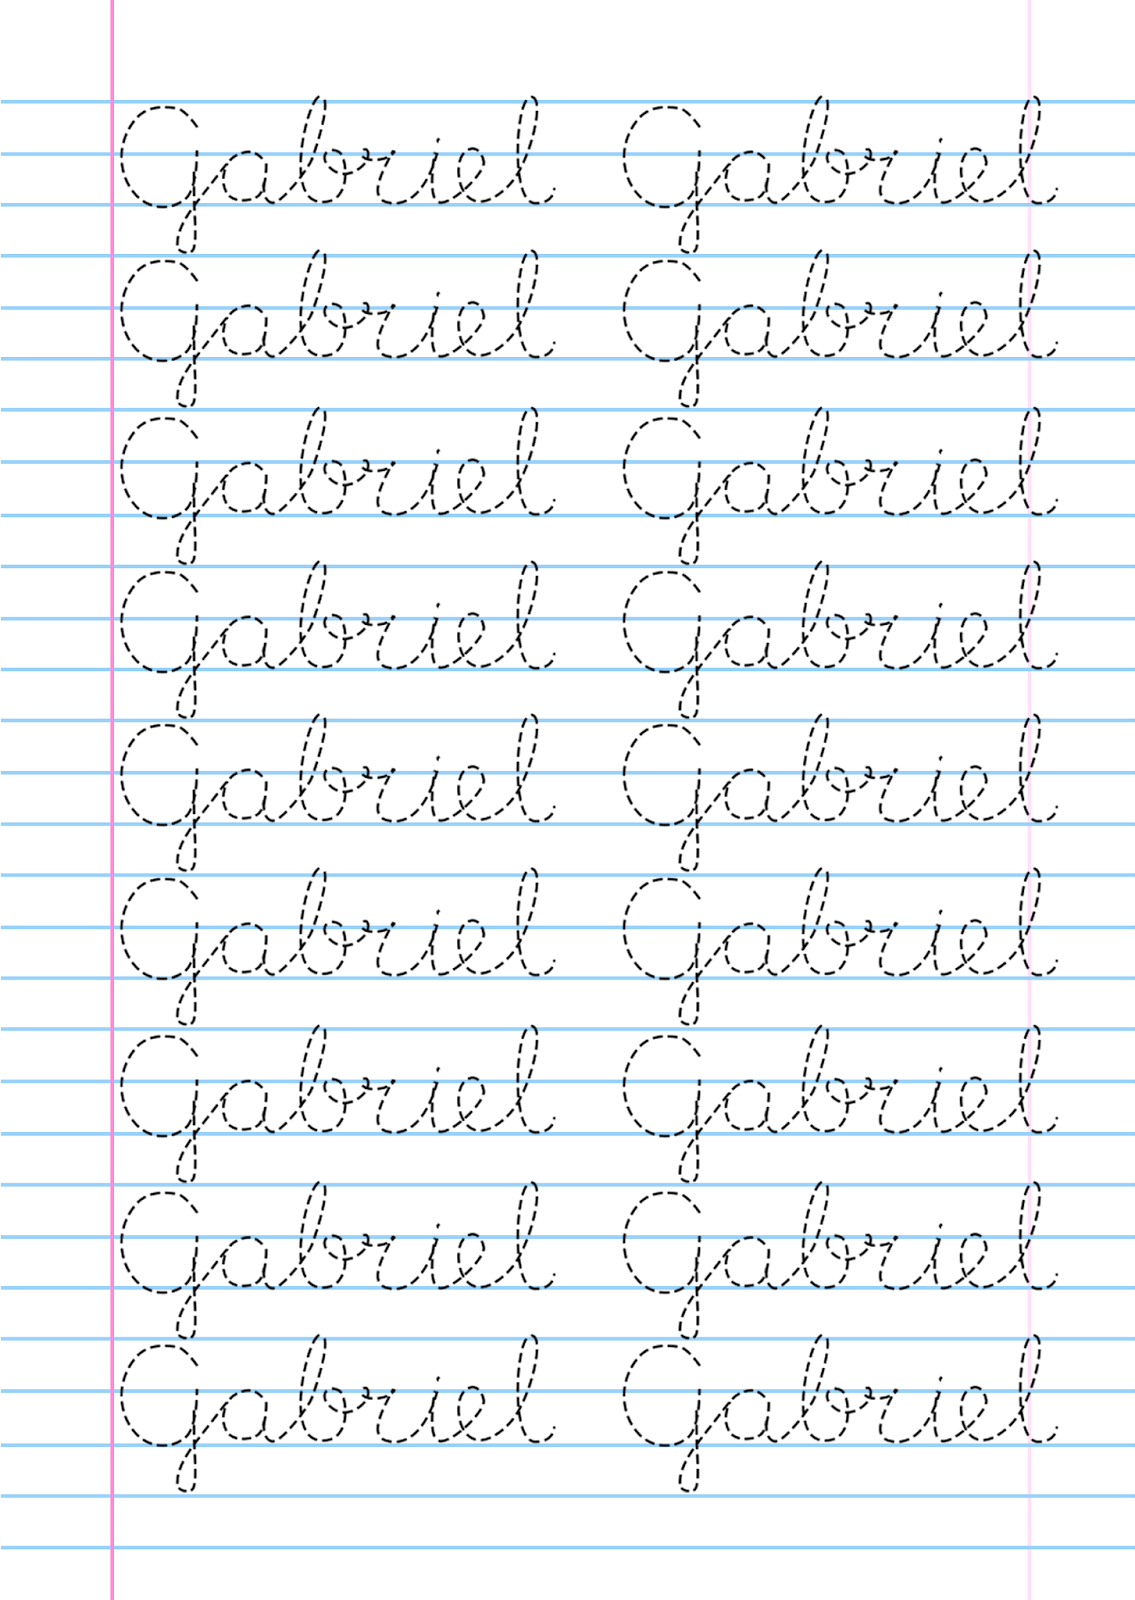 Gabriel Gabriel
Gabriel Gabriel
Gabriel Gabriel
Gabriel Gabriel
Gabriel Gabriel
Gabriel Gabriel
Gabriel Gabriel
Gabriel Gabriel
Gabriel Gabriel